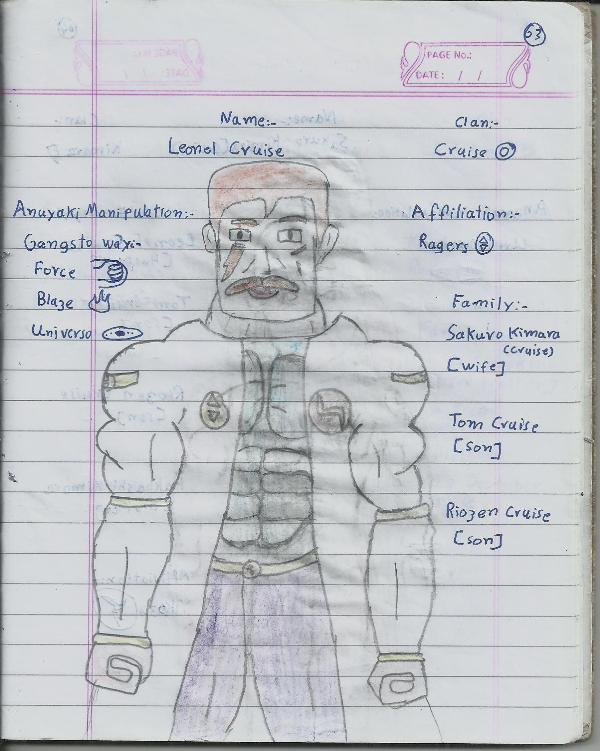 63
PAGE No.:
DATE: / /
Name:-
Leonel Cruise
Clan:-
Cruise
Anuyaki Manipulation:-
Force
Blaze
Universo
Affiliation:-
Ragers
Family:-
Sakuro Kimara
(Cruise)
[wife]
Tom Cruise
[son]
Riozen Cruise
[son]